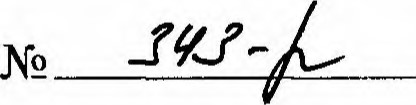 № 343-р